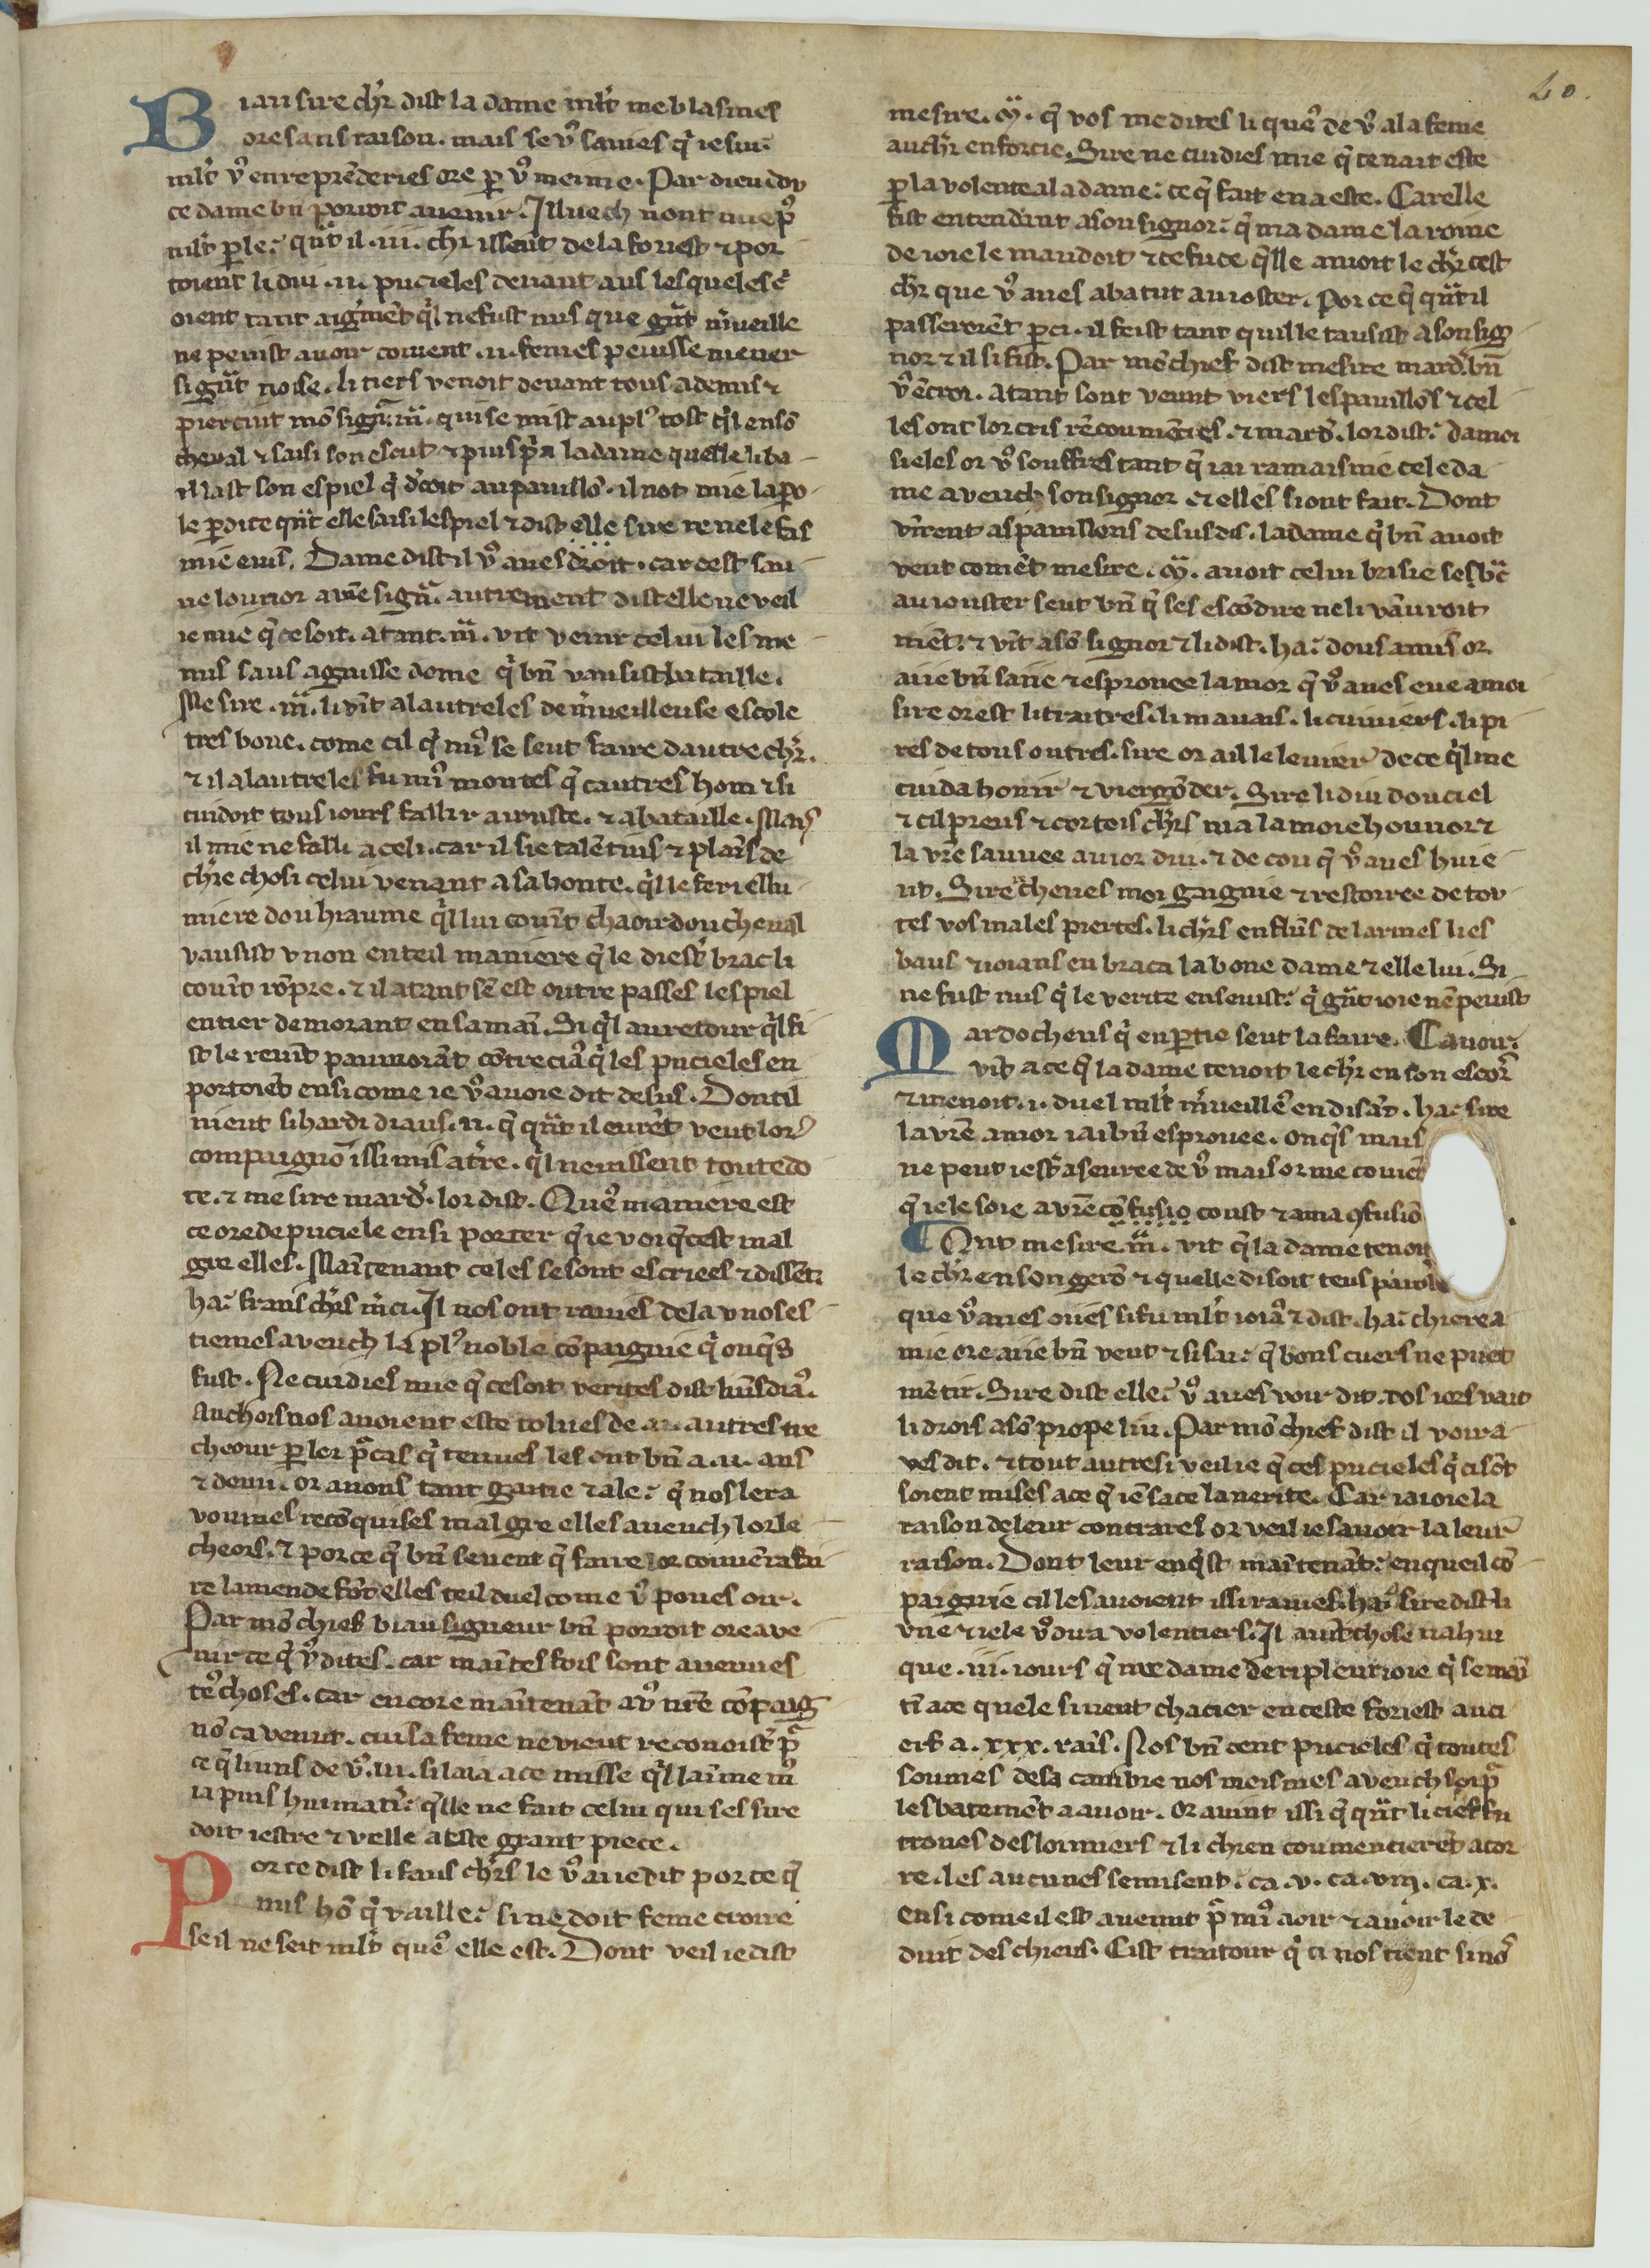 40.
Biau sire chr̄ dist la dame ml̄t me blasmes
ore sans raison. mais se vꝰ saviés q̄ ie sui
ml̄t vꝰ en reprēderiés ore ꝑ vꝰ meime. Par dieu dou
ce dame bn̄ porroit avenir. Illuech n'ont mie pꝰ
ml̄t ꝑle. qn̄t il .iii. chr̄ issent de la foriest ⁊ por
toient li dui .ii. pucieles devant aus lesqueles
oient tant aigrem̄t q̄l ne fust nus que grāt m̄veille
ne peuist avoir coment .ii. femes peuissē mener
si grāt noise. li tiers venoit devant tous ademis ⁊
pierciut mō signꝛ .m̄. qui se mist au plꝰ tost q̄l en sō
cheval ⁊ saisi son escut ⁊ puis prīa la dame quelle li ba
illast son espiel q̄ drēcoit au pauillō. il not mie la paro
le ꝑdite qn̄t elle saisi lespiel ⁊ dist elle sire ie ne le fas
mie envis. Dame dist il vꝰ aves droit. car cest sau
ne lounor a vr̄e signꝛ. autrement dist elle ne veil
ie mie q̄ ce soit. atant .m̄. vit venir celui les me
nus saus aguisse dome q̄ bn̄ vausist bataille.
Me sire .m̄. li vīt a lautre les de m̄veilleuse escole
tres bone. come cil q̄ miꝰ se seut faire dautre chr̄.
⁊ il a lautre les fu miꝰ montes q̄ cautres hom ⁊ si
cuidoit tous iours fallir a iouste. ⁊ a bataille. Mais
il mie ne falli a celi. car il si ētalētius ⁊ plāīs de
chr̄ie chosi celui venant a sa honte. q̄l le feri en lu
miere dou hiaume q̄l lui couīt chaoir dou cheval
vausist v non en teil maniere q̄ le diestr̄ brac li
couīt rōpre. ⁊ il atant sē est outre passes lespiel
entier demorant en sa maī. Si q̄l au retour q̄l fi
st le revīt paumorāt cōtre ciaꝰ q̄ les pucieles en
portoiēt ensi come ie vꝰ avoie dit desus. Dont il
nient si hardi diaus .ii. q̄ qn̄t il eurēt veut lor
compaignō issi mis a t̄re. q̄l ne nissent toute do
te. ⁊ me sire mard̄. lor dist. Quēꝰ maniere est
ce ore de puciele ensi porter q̄ ie voi q̄ cest mal
gre elles. Maītenant celes se sont escriees ⁊ dissēt
ha. frans chr̄s m̄ci. Il nos ont ravies de la v nos es
tiemes avench la plꝰ noble cōpaignie q̄ onq̄s
fust. Ne cuidies mie q̄ ce soit verites dist li uns diaꝰ.
Anchois nos avoient este tolues de .ii. autres tre
cheour ꝑ lor p̄cas q̄ tenues les ont bn̄ a .ii. ans
⁊ demi. or avons tant gaitie ⁊ ale. q̄ nos lera
voumes recōquises mal gre elles avench lor le
cheors. ⁊ por ce q̄ bn̄ sevent q̄ faire lor couvēra fai
re lamende fōt elles teil duel come vꝰ poues oir.
Par mō chief biau signeur bn̄ porroit ore ave
nir ce q̄ vꝰ dites. car maītes fois sont avenues
tēꝰ choses. car encore maītenāt a vꝰ nr̄e cōpaig
nō ca venut. cui sa feme ne vient reconoistr̄ pꝛ
ce q̄ li uns de vꝰ .iii. si la ia a ce misse q̄l laīme mꝰ
ia puis hui matī. q̄lle ne fait celui qui ses sire
doit iestre ⁊ velle a este grant piece.
Por ce dist li faus chr̄s le vꝰ ai ie dit por ce q̄
nus hō q̄ vaille. si ne doit feme croire
se il ne seit ml̄t quēꝰ elle est. Dont veil ie dist
mesire .m̄. q̄ vos me dites li quēꝰ de vꝰ a la feme
au chr̄ enforcie. Sire ne cuidies mie q̄ ce nait este
ꝑ la volente a la dame. ce q̄ fait en a este. Car elle
fist entendant a son signor. q̄ ma dame la roine
de ioie le mandoit ⁊ ce fu ce q̄lle amoit le chr̄ cest
chr̄ que vꝰ aves abatut au ioster. Por ce q̄ qn̄t il
passeroiēt ꝑ ci. il feist tant quil le tausist a son sig
nor ⁊ il si fist. Par mō chief dist mesire mard̄. bn̄
vꝰ ē croi. atant sont venut viers les pauillōs ⁊ cel
les ont lor cris rēcoumēcies. ⁊ mard̄. lor dist. damoi
sieles or vꝰ souffres tant q̄ iai ramaisnie cele da
me avench son signor ⁊ elles si ont fait. Dont
vīrent as pauillons desus dis. la dame q̄ bn̄ avoit
veut comēt mesire .m̄. avoit celui brisie ses brᷓ
au iouster seut bn̄ q̄ ses escōdire ne li vauroit
niēt. ⁊ vīt a sō signor ⁊ li dist. ha. dous amis or
ai ie bn̄ saīie ⁊ esprouee lamor q̄ vꝰ aves eue a moi
sire or est li traitres. li mauais. li cuiuiers. li pi
res de tous outres. sire or aille le vier de ce q̄l me
cuida honir ⁊ viergōder. Sire li diu dou ciel
⁊ cil preus ⁊ cortois chr̄s ma la moie hounor ⁊
la vr̄e sauvee amor diu. ⁊ de cou q̄ vꝰ aves hui e
ut. Sire cheves moi gaignie ⁊ restorree de tou
tes vos males piertes. li chr̄s en flūs de larmes lies
baus ⁊ ioians en braca la bone dame ⁊ elle lui. Si
ne fust nus q̄ le verite en seuist. q̄ grāt ioie nē peuist
Mardocheus q̄ en ꝑtie seut la faire. Cavoir.
vit a ce q̄ la dame tenoit le chr̄ en son escor̄
⁊ menoit .i. duel ml̄t m̄veillēꝰ en disāt. ha. sire
la vr̄e amor iai bn̄ esprouee. onq̄s mais
ne peut iestr̄ aseuree de vꝰ mais or me coviēt
q̄ ie le soie a vr̄e cōfusio coust ⁊ a ma ꝯfusiō
Qnt mesire .m̄. vit q̄ la dame tenoit
le chr̄ en son gerō ⁊ quelle disoit teus parole
que vꝰ aves oies si fu ml̄t ioiāꝰ ⁊ dist. ha. chiere a
mie ore ai ie bn̄ veut ⁊ si sai. q̄ bons cuers ne puet
mētir. Sire dist elle. vꝰ aves voir dit. tos iors vait
li drois a sō propre liu. Par mō chief dist il voir a
ves dit. ⁊ tout autresi veil ie q̄ ces pucieles q̄ ci sōt
soient mises a ce q̄ iē sace la verite. Car ia ioie la
raison de leur contrares or veil ie savoir la leur
raison. Dont leur enq̄st maītenāt. en queil cō
paignie cil les avoient issi ravies. ha. sire dist li
vne ⁊ ie le vꝰ dirai volentiers. Il avīt chose na hui
que .iii. iours q̄ me dame de ripleu rioie q̄ se maī
tiᷓ a ce quele si vient chacier en ceste foriest a un
cierf a .xxx. raīs. Nos bn̄ cent pucieles q̄ toutes
soumes de sa cambre nos meismes avench soi pꝛ
les batemēt a avoir. Or avint issi q̄ qn̄t li cierf fu
troves des loiriers ⁊ li chien coumencierēt a cor
re. les aucunes semisent. ca .v. ca .viij. ca .x.
ensi come il est avenut pꝛ miꝰ aoir ⁊ avoir le de
duit des chiens. Cist traitour q̄ ci nos tient si nōꝰ